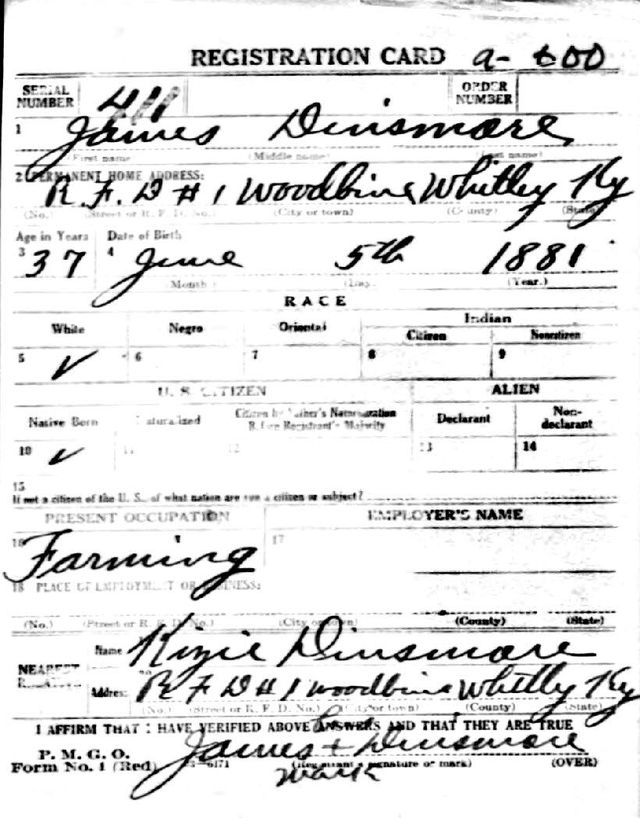 REGISTRATION CARD a-600
SERIAL NUMBER 411 ORDER NUMBER
1 James Dinsmore
(First name) (Middle name) (Last name)
2 PERMANENT HOME ADDRESS:
R. F. D # 1 Woodbine Whitley Ky
(No.) (Street or R. F. D. No.) (City or town) (County) (State)
Age in Years Date of Birth
3 37 4 June 5th 1881
(Month) (Day) (Year.)
RACE
White Negro Oriental Indian
Citizen Noncitizen
5 ✓ 6 7 8 9
U. S. CITIZEN ALIEN
Native Born Naturalized Citizen by Father's Naturalization Before Registrant's Majority Declarant Non-declarant
10 ✓ 11 12 13 14
15
If not a citizen of the U. S., of what nation are you a citizen or subject?
PRESENT OCCUPATION EMPLOYER'S NAME
16 Farming 17
18 PLACE OF EMPLOYMENT OR BUSINESS:
(No.) (Street or R. F. D. No.) (City or town) (County) (State)
NEAREST Name Kizie Dinsmore
Address R F D # 1 Woodbine Whitley Ky
(No.) (Street or R. F. D. No.) (City or town) (County) (State)
I AFFIRM THAT I HAVE VERIFIED ABOVE ANSWERS AND THAT THEY ARE TRUE
P. M. G. O.
Form No. 1 (Red) James + Dinsmore
mark (Registrant's signature or mark) (OVER)